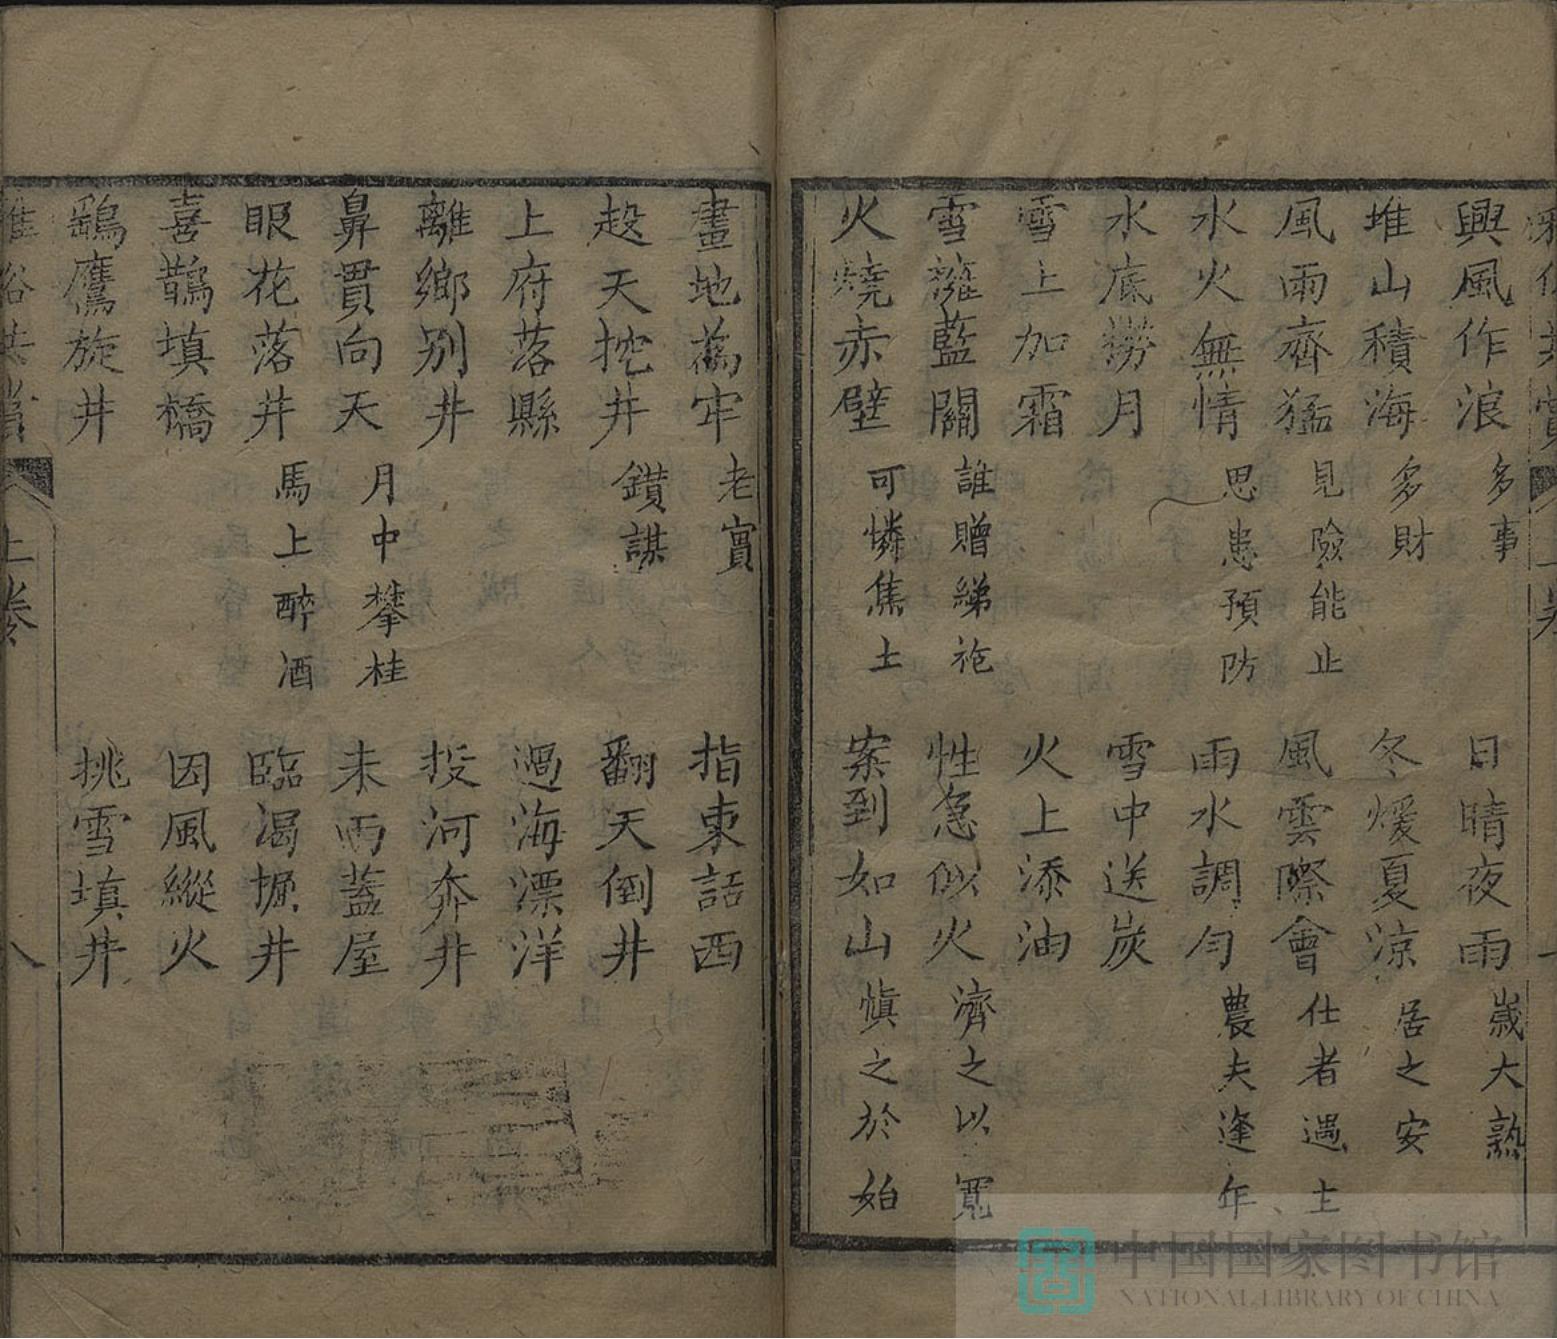 興風作浪 多事 日晴夜雨 歲大熟
堆山積海 多財 冬煖夏涼 居之安
風雨齊猛 見險能止 風雲際會 仕者遇主
水火無情 思患預防 雨水調勻 農夫逢年
水底撈月 雪中送炭
雪上加霜 火上添油
雪擁藍關 誰贈綈袍 性急似火 濟之以寬
火燒赤壁 可憐焦土 案到如山 慎之於始
畫地為牢 老實 指東話西
趕天挖井 鑽謀 翻天倒井
上府落縣 過海漂洋
離鄉別井 投河奔井
鼻貫向天 月中攀桂 未雨蓋屋
眼花落井 馬上醉酒 臨渴掘井
喜鵲填橋 因風縱火
鷂鷹旋井 挑雪填井
雅俗共賞 上卷 八
中国国家图书馆
NATIONAL LIBRARY OF CHINA